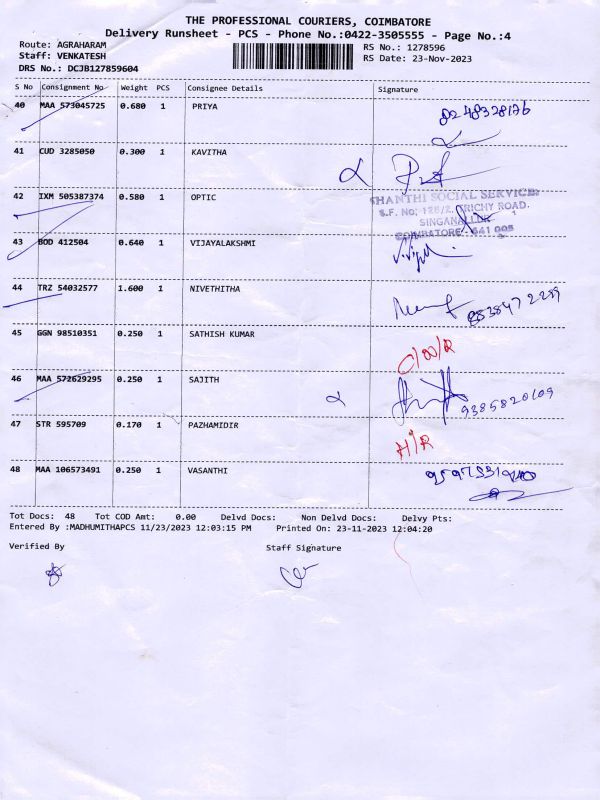 THE PROFESSIONAL COURIERS, COIMBATORE
Delivery Runsheet - PCS - Phone No.:0422-3505555 - Page No.:4
Route: AGRAHARAM RS No.: 1278596
Staff: VENKATESH RS Date: 23-Nov-2023
DRS No.: DCJB127859604
S No Consignment No Weight PCS Consignee Details Signature
40 MAA 573045725 0.680 1 PRIYA
41 CUD 3285050 0.300 1 KAVITHA
42 IXM 505387374 0.580 1 OPTIC
SHANTHI SOCIAL SERVICES
S.F. No; 128/2, TRICHY ROAD.
SINGANALLUR
COIMBATORE - 641 005
43 BOD 412504 0.640 1 VIJAYALAKSHMI
44 TRZ 54032577 1.600 1 NIVETHITHA
45 GGN 98510351 0.250 1 SATHISH KUMAR
46 MAA 572629295 0.250 1 SAJITH 9385820109
47 STR 595709 0.170 1 PAZHAMIDIR H/R
48 MAA 106573491 0.250 1 VASANTHI
Tot Docs: 48 Tot COD Amt: 0.00 Delvd Docs: Non Delvd Docs: Delvy Pts:
Entered By :MADHUMITHAPCS 11/23/2023 12:03:15 PM Printed On: 23-11-2023 12:04:20
Verified By Staff Signature